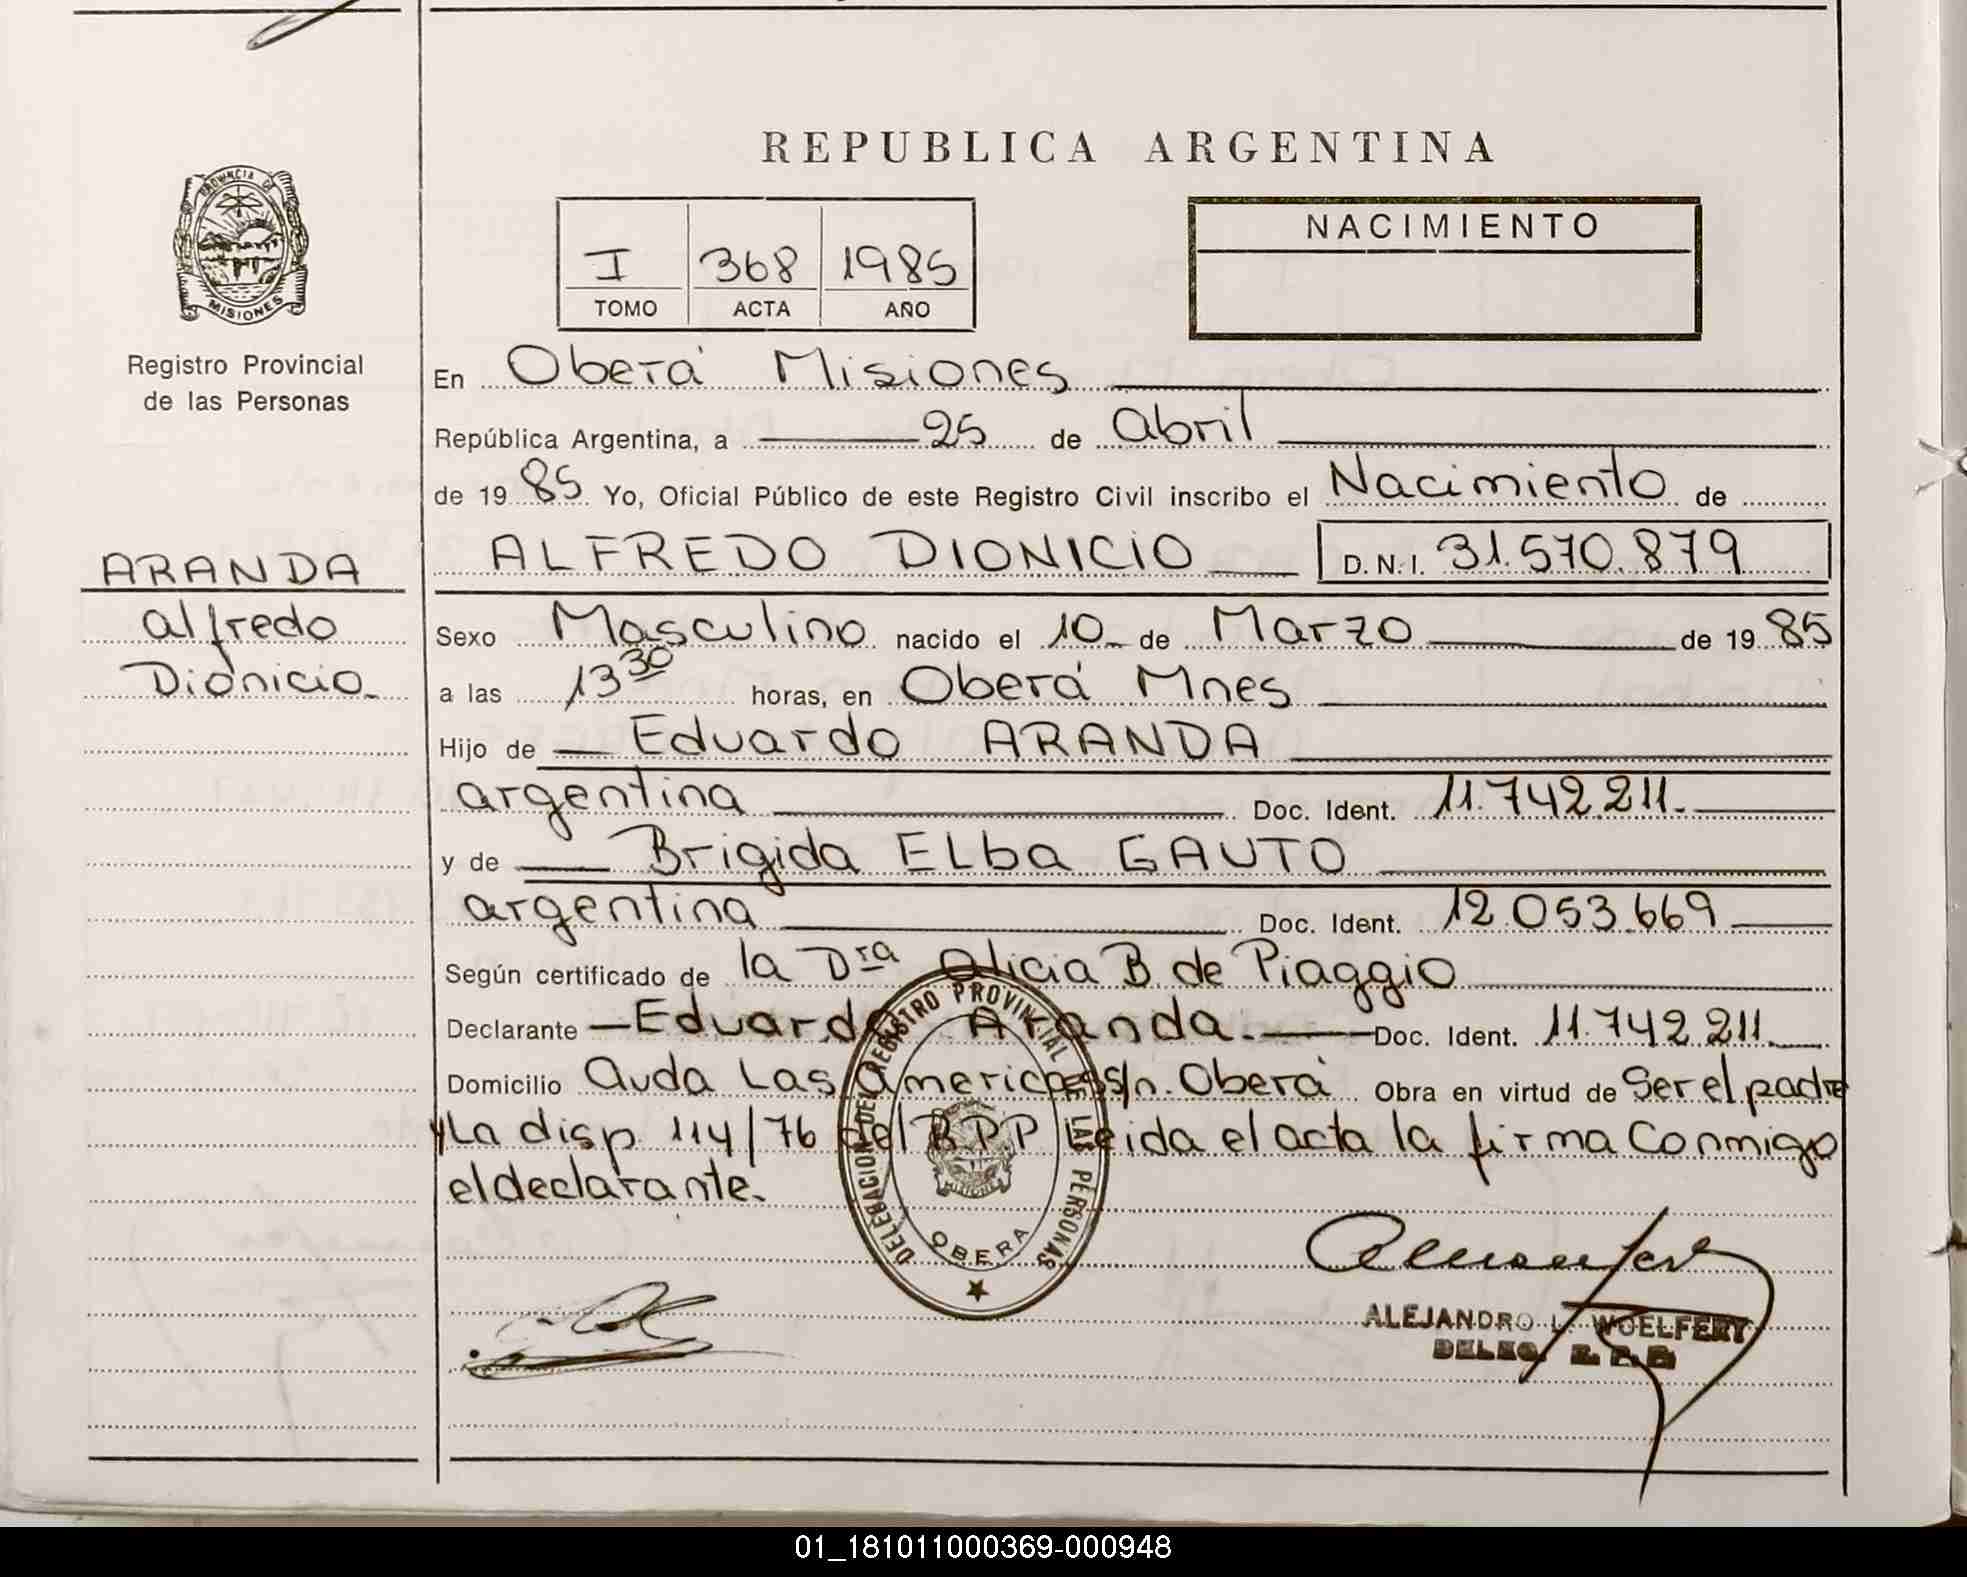 REPUBLICA ARGENTINA
PROVINCIA DE
MISIONES
Registro Provincial
de las Personas
I 368 1985
TOMO ACTA AÑO
NACIMIENTO
En Oberá Misiones
República Argentina, a 25 de abril
de 1985 Yo, Oficial Público de este Registro Civil inscribo el Nacimiento de
ARANDA
alfredo
Dionicio
ALFREDO DIONICIO D.N.I. 31.570.879
Sexo Masculino nacido el 10 de Marzo de 1985
a las 13 30 horas, en Oberá Mnes
Hijo de Eduardo ARANDA
argentina Doc. Ident. 11.742.211.
y de Brigida ELba GAUTO
argentina Doc. Ident. 12.053.669
Según certificado de la Dra alicia B. de Piaggio
Declarante Eduardo Aranda. Doc. Ident. 11.742.211.
Domicilio Avda Las americas s/n. Oberá Obra en virtud de Ser el padre
y La disp. 114/76 del RPP Leida el acta la firma Conmigo
el declarante.
DELEGACION DEL REGISTRO PROVINCIAL DE LAS PERSONAS
MISIONES
OBERA
ALEJANDRO L. WOELFERT
DELEG. R. P. P.
01_181011000369-000948